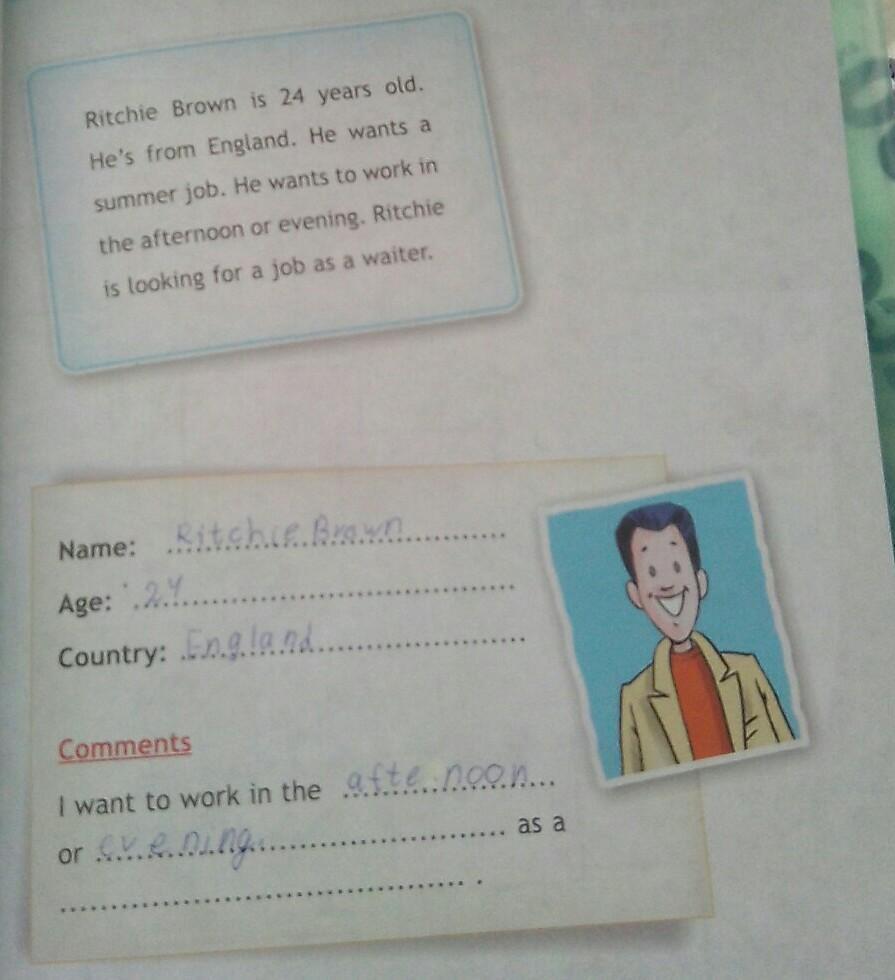 Ritchie Brown is 24 years old.
He's from England. He wants a
summer job. He wants to work in
the afternoon or evening. Ritchie
is looking for a job as a waiter.
Name: Ritchie Brown
Age: 24
Country: England
Comments
I want to work in the afte noon
or evening as a
.